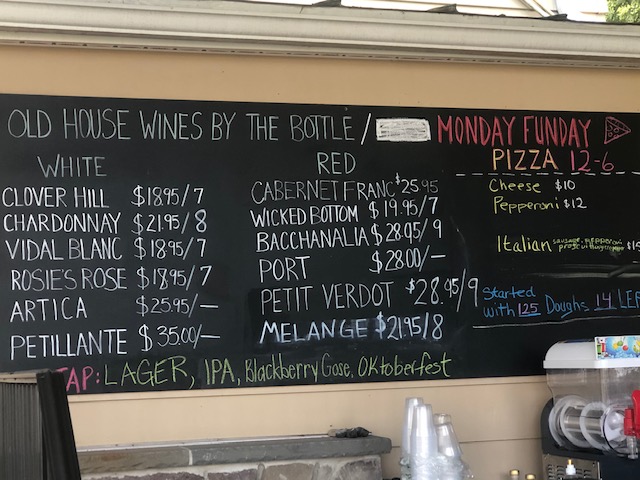 OLD HOUSE WINES BY THE BOTTLE /
WHITE
CLOVER HILL $18.95/7
CHARDONNAY $21.95/8
VIDAL BLANC $18.95/7
ROSIE'S ROSE $18.95/7
ARTICA $25.95/—
PETILLANTE $35.00/—
RED
CABERNET FRANC $25.95
WICKED BOTTOM $19.95/7
BACCHANALIA $28.95/9
PORT $28.00/—
PETIT VERDOT $28.95/9
MELANGE $21.95/8
TAP: LAGER, IPA, Blackberry Gose, Oktoberfest
MONDAY FUNDAY
PIZZA 12-6
Cheese $10
Pepperoni $12
Italian sausage, pepperoni,
Started
with 125 Doughs 14